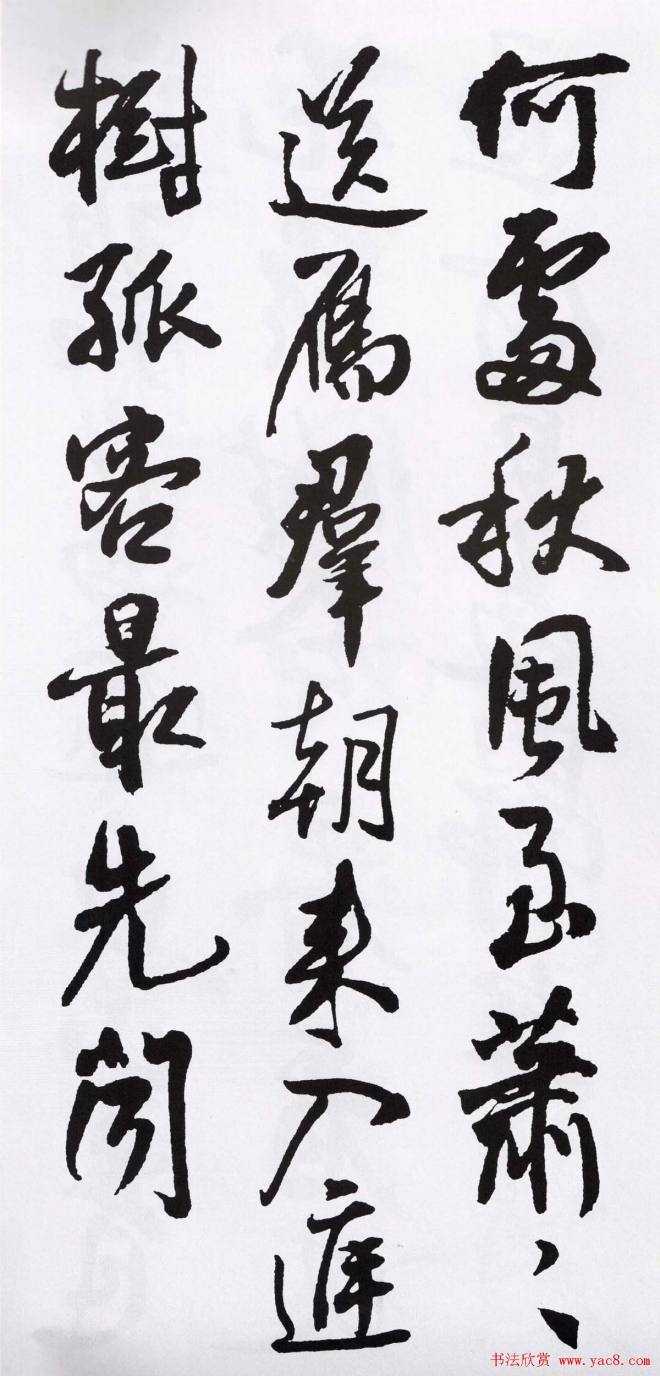 何處秋風至蕭〻
送雁羣朝来入庭
樹孤客最先聞
书法欣赏 www.yac8.com